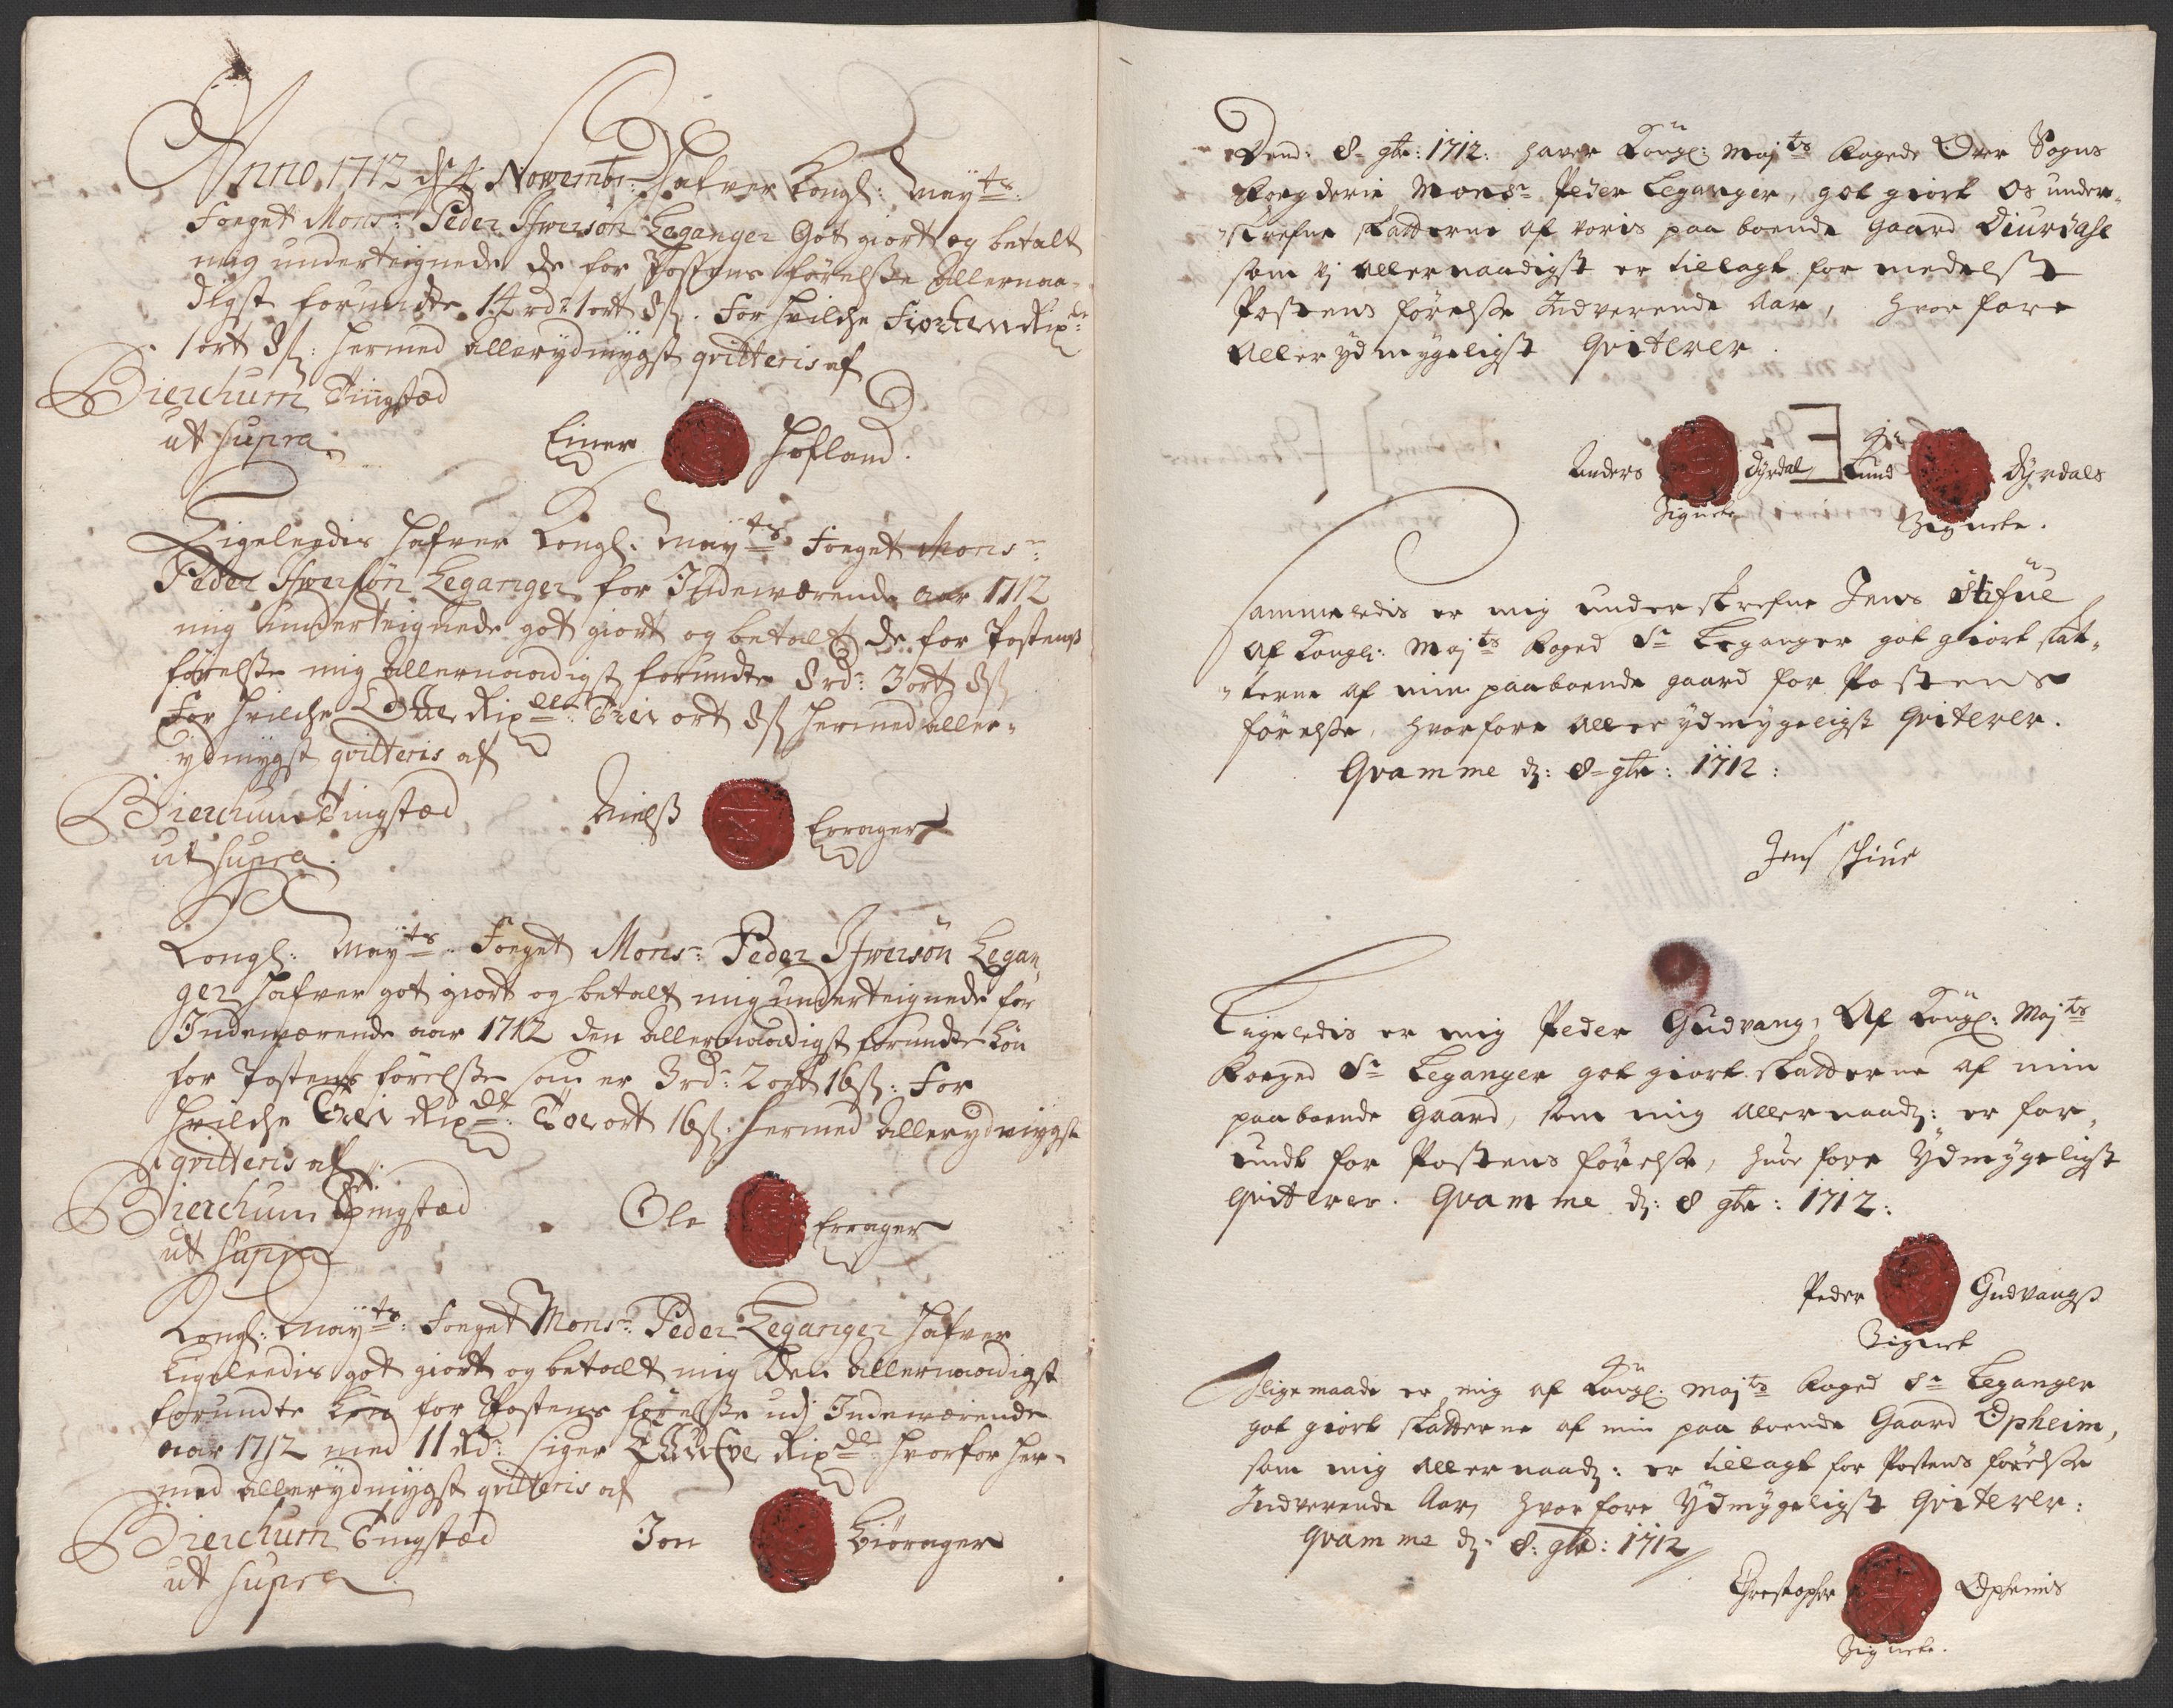 Anno 1712 d 4 Novembr: hafver Kongl: May^ts
Foeget Mons^r: Peder Ifwersøn Leganger Got giort og betalt
mig underteignede de for Postens førelsse Allernaa-
digst forundte 14 rd: 1 ort 8 s. For hvilche Fiorten Rix^dr
1 ort 8 s: hermed allerydmygst qvitteris af
Bierchum Tingstæd
ut supra
Einer Hofland.
Ligeleedis hafver Kongl: May^ts Foeget Mons^r:
Peder Ifwersøn Leganger for Indeværende aar 1712
mig underteignede got giort og betalt de for Postens
førelsse mig allernaadigst forundte 8 rd: 3 ort 8 s
For hvilche Otte Rix^dlr: Trei ort 8 s hermed aller-
ydmygst qvitteris af
Bierchum Tingstæd
ut supra.
Nielss Errager
Kongl: May^ts Foeget Mons^r: Peder Ifwersøn Legan-
ger hafver got giort og betalt mig underteignede for
Indeværende aar 1712 den allernaadigst forundte Løn
for Postens førelsse som er 3 rd: 2 ort 16 s: For
hvilche Trei Rix^dr: Toe ort 16 s: hermed allerydmygst
qvitteris af
Bierchum Tingstæd
ut supra
Ole Errager
Kongl: May^ts: Foeget Mons^r: Peder Leganger hafver
Ligeleedis got giort og betalt mig den allernaadigst
forundte Løn for Postens førelsse udj Indeværende
aar 1712 med 11 Rd: siger Elleve Rix^dr hvorfor her-
med allerydmygst qvitteris af
Bierchum Tingstæd
ut supra
Jon Biørager
Dend: 8 9br: 1712: haver Kongl: Maj^ts Fogede Over Sogns
Foegderie Mons^r Peder Leganger, got giort os under-
skrefne skatterne af voris paa boende gaard Diurdahl
som vj allernaadigst er tillagt for medelst
Postens førelsse Indverende Aar, hvor fore
Aller ydmygeligst Qviterer.
Anders Dyrdal Knud Dyrdals
Zignete Zignete.
Sammeledis er mig underskrefne Jens Skiul
af Kongl: Maj^ts Foged S^r Leganger got giort skat-
terne af min paaboende gaard for Postens
førelsse, hvorfore aller ydmygeligst Qviterer.
Qvamme d: 8 9br: 1712:
Jens skiul
Ligeledis er mig Peder Gudvang, Af Kongl: Maj^ts
Foeged S^r Leganger got giort skatterne af min
paaboende gaard, som mig allernaad: er for-
undt for Postens førelsse, huor fore Ydmygeligst
Qvitterer. Qvamme d: 8 9br: 1712:
Peder Gudvangs
Zignet
Lige maade er mig af Kongl: Maj^ts Foged S^r Leganger
got giort skatterne af min paa boende Gaard Opheim,
som mig allernaad: er tillagt for Postens førelsse
Indverende Aar, hvor fore Ydmygeligst Qviterer:
Qvamme d: 8: 9br: 1712
Christopher Opheims
Zignete.